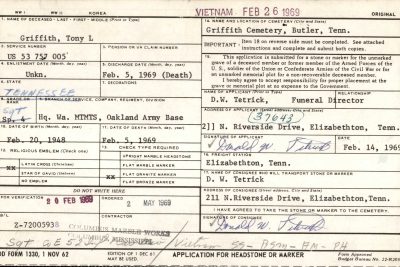 WW II KOREA VIETNAM FEB 26 1969 ORIGINAL
NAME OF DECEASED - LAST - FIRST - MIDDLE (Print or Type)
Griffith, Tony L
NAME AND LOCATION OF CEMETERY (City and State)
Griffith Cemetery, Butler, Tenn.
SERVICE NUMBER
US 53 757 005
PENSION OR VA CLAIM NUMBER
IMPORTANT: Item 18 on reverse side must be completed. See attached instructions and complete and submit both copies.
ENLISTMENT DATE (Month, day, year)
Unkn.
DISCHARGE DATE (Month, day, year)
Feb. 5, 1969 (Death)
This application is submitted for a stone or marker for the unmarked grave of a deceased member or former member of the Armed Forces of the U. S., soldier of the Union or Confederate Armies of the Civil War or for an unmarked memorial plot for a non-recoverable deceased member.
I hereby agree to accept responsibility for proper placement at the grave or memorial plot at no expense to the Government.
STATE
TENNESSEE
NAME OF APPLICANT (Print or Type)
RELATIONSHIP
D.W. Tetrick, Funeral Director
BRANCH OF SERVICE, COMPANY, REGIMENT, DIVISION
SGT
Sp. 4 Hq. Wa. MTMTS, Oakland Army Base
ADDRESS OF APPLICANT (Street address, City and State)
37643
211 N. Riverside Drive, Elizabethton, Tenn.
DATE OF BIRTH (Month, day, year)
Feb. 20, 1948
DATE OF DEATH (Month, day, year)
Feb. 5, 1969
SIGNATURE OF APPLICANT
DATE
Donald W. Tetrick Feb. 14, 1969
RELIGIOUS EMBLEM (Check one)
CHECK TYPE REQUIRED
XX LATIN CROSS (Christian)
STAR OF DAVID (Hebrew)
NO EMBLEM
UPRIGHT MARBLE HEADSTONE
FLAT MARBLE MARKER
XX FLAT GRANITE MARKER
FLAT BRONZE MARKER
FREIGHT STATION
Elizabethton, Tenn.
NAME OF CONSIGNEE WHO WILL TRANSPORT STONE OR MARKER
D. W. Tetrick
DO NOT WRITE HERE
ADDRESS OF CONSIGNEE (Street address, City and State)
211 N.Riverside Drive, Elizabethton, Tenn.
FOR VERIFICATION
20 FEB 1969
ORDERED
2 MAY 1969
I HAVE AGREED TO TAKE THE STONE OR MARKER TO THE CEMETERY.
Z-72005938
COLUMBUS MARBLE WORKS
MISSISSIPPI
SIGNATURE OF CONSIGNEE
Donald W. Tetrick
Sgt Vietnam SS - BSM - AM - PH
DD FORM 1330, 1 NOV 62
EDITION OF 1 DEC 61
APPLICATION FOR HEADSTONE OR MARKER
Form Approved